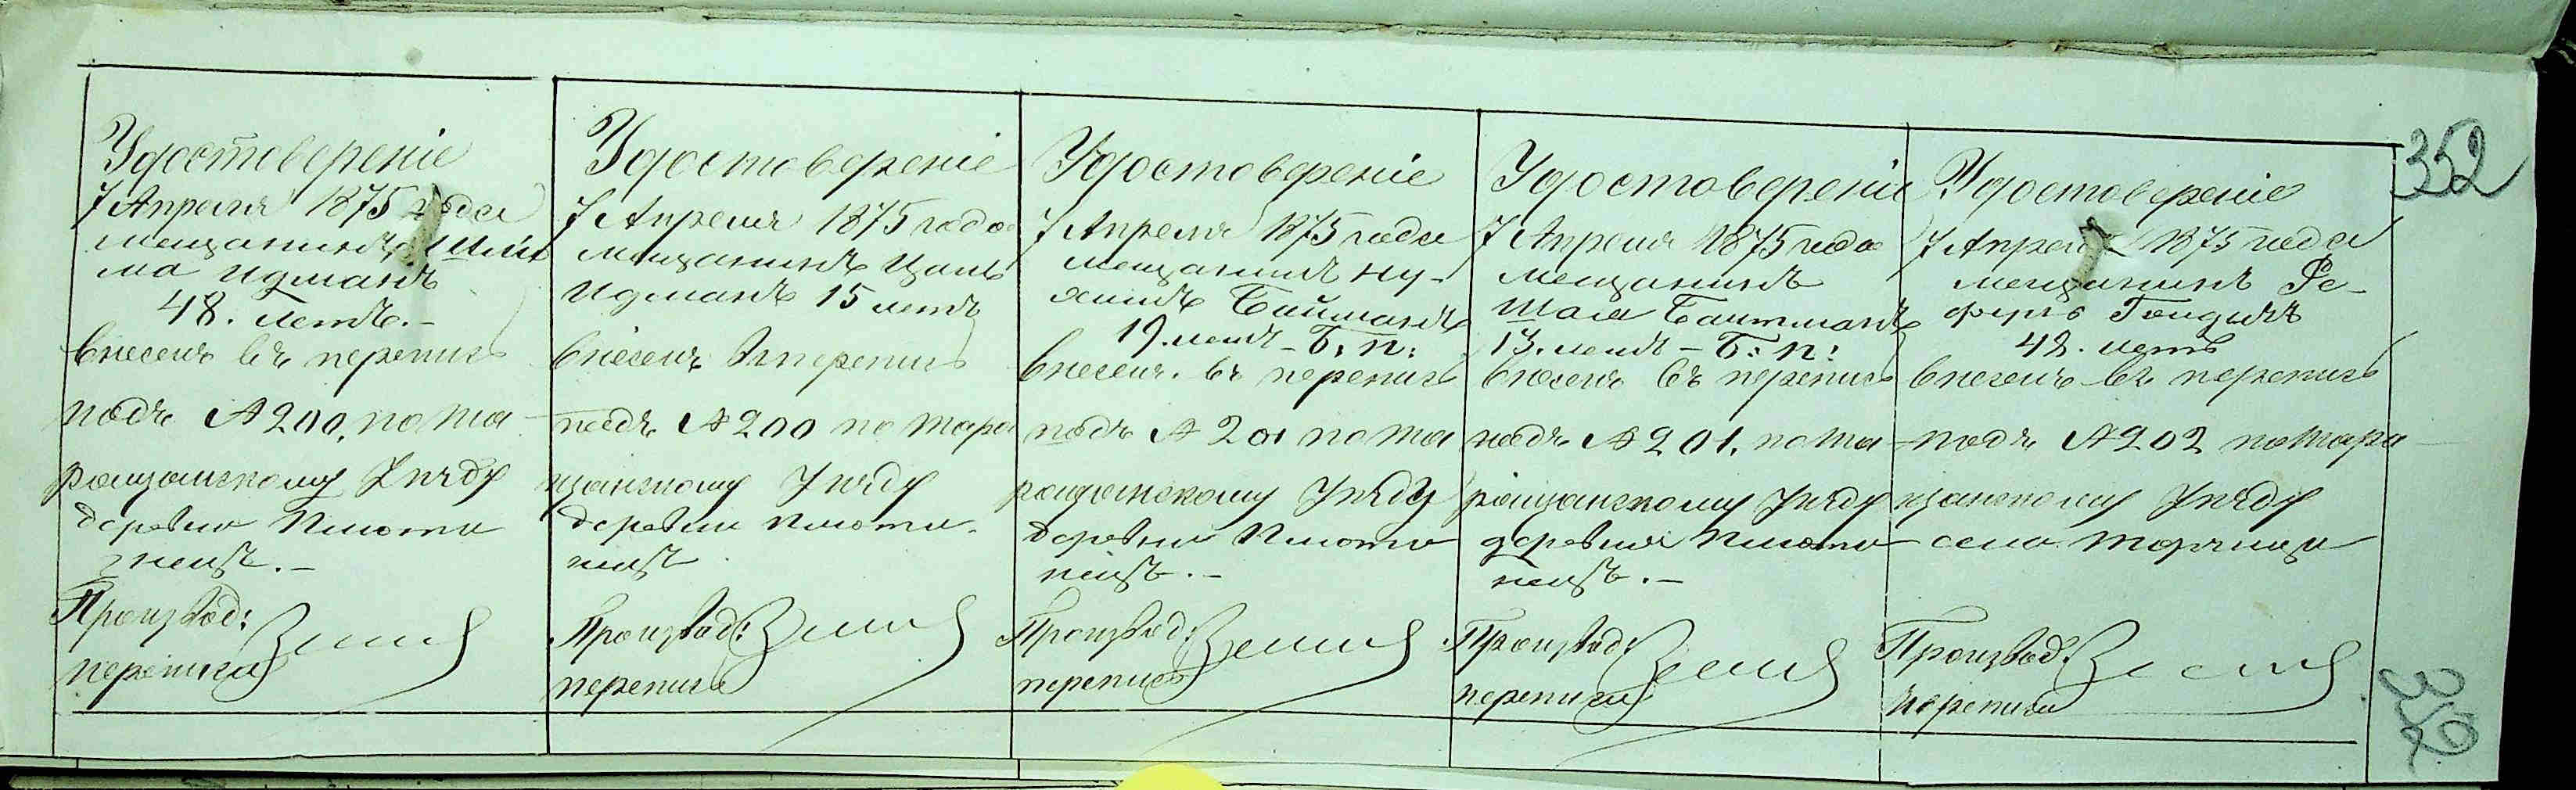 352
Удостоверенiе
7 Апреля 1875 года
мещанинъ Шлй
ма Идманъ
48. летъ.-
внесенъ въ перепись
подъ № 200, по Та
ращанскому Уѣзду
деревни Плоти
Произвд:
переписи
Удостоверенiе
7 Апреля 1875 года
мещанинъ
Идманъ 15 летъ
внесенъ въ перепись
подъ № 200 по Тара
щанскому Уѣзду
деревни Плоти-
Производ:
переписи
Удостоверенiе
7 Апреля 1875 года
мещанинъ Ну-
химъ Байтманъ
19. летъ - Б. п:
внесенъ въ перепись
подъ № 201 по Та
ращанскому Уѣзду
деревни Плоти
Производ:
перепись
Удостоверенiе
7 Апреля 1875 года
мещанинъ
Шаля Байтманъ
13. летъ - Б: п:
внесенъ въ перепись
подъ № 201. по Та-
ращанскому Уѣзду
деревни Плоти
Производ:
переписи
Удостоверенiе
7 Апреля 1875 года
мещанинъ Ре-
48. летъ
внесенъ въ перепись
подъ № 202 по Тара
щанскому Уѣзду
села Торчица
Производ:
переписи